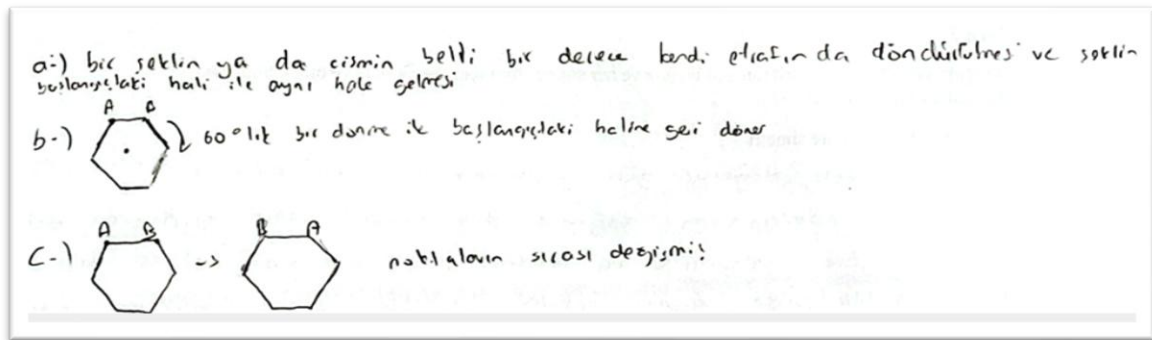 a-) bir şeklin ya da cismin belli bir derece kendi etrafında döndürülmesi ve şeklin
başlangıçtaki hali ile aynı hale gelmesi
A B
b-) 60°lik bir dönme ile başlangıçtaki haline geri döner
A B B A
c-) -> noktaların sırası değişmiş